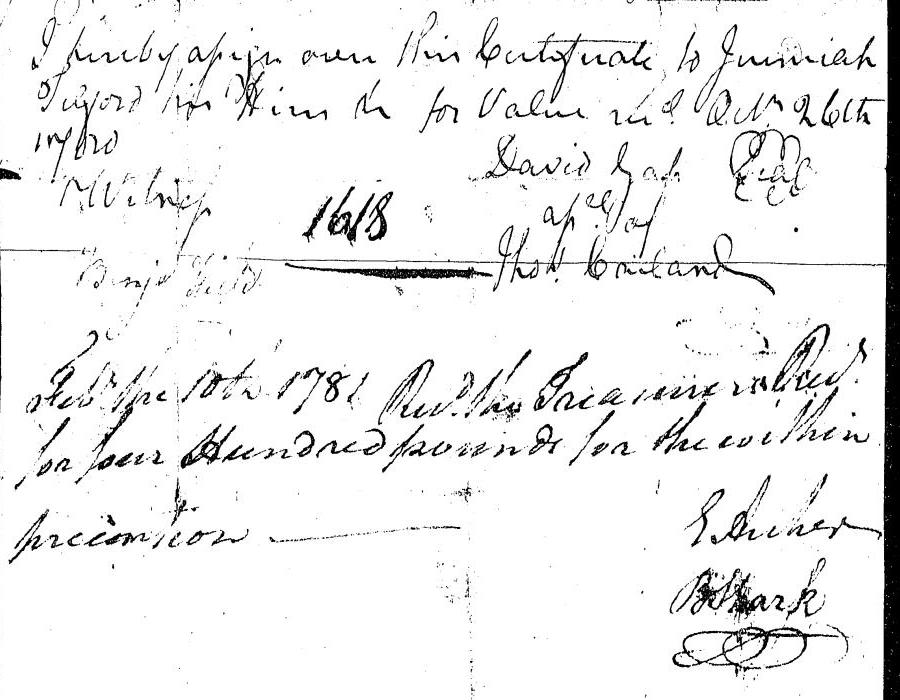 I hereby assign over this Certificate to Jeremiah
Tilford his Heirs &c for Value recd. Octr. 26th
1780
David Gass Seal
Witness
1618
assee. of
Benja. Field
Thos. Cauland
Feby. the 10th 1781 Recd. the Treasurers Rect.
for four Hundred pounds for the within
preemtion
E Archer
B Stark